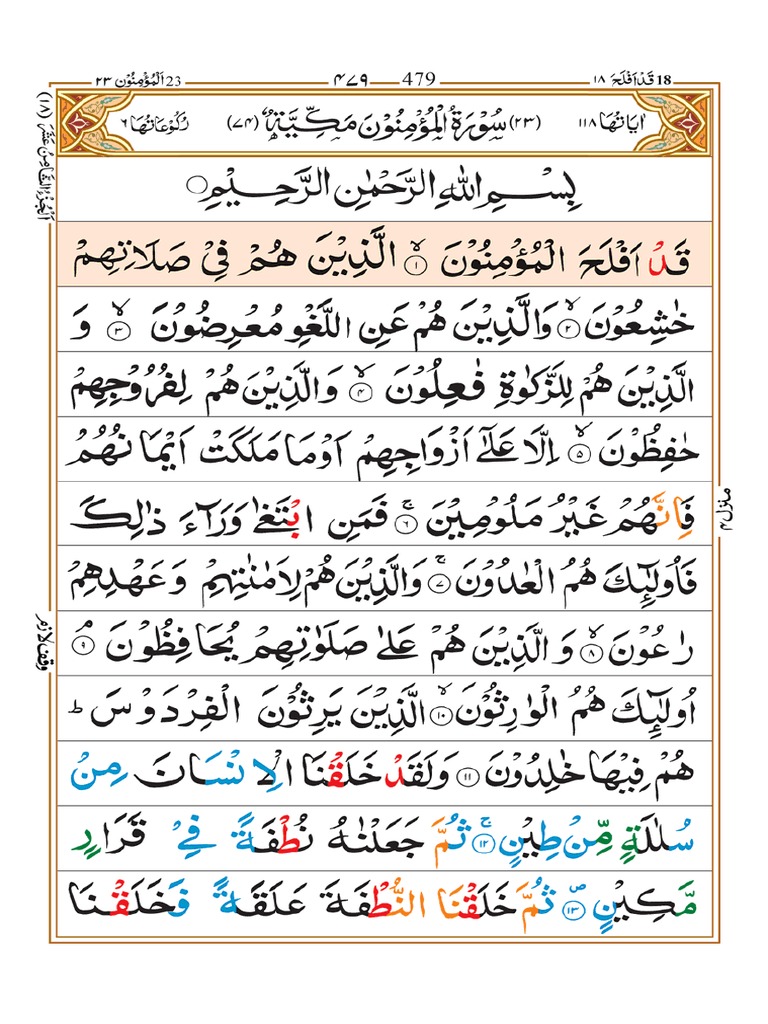 18 قَدْ اَفْلَحَ ۱۸
479 ۴۷۹
23 اَلْمُؤْمِنُوْن ۲۳
اٰیَاتُهَا ۱۱۸
(۲۳) سُوْرَةُ الْمُؤْمِنُوْنَ مَكِّيَّةٌ (۷۴)
رُكُوْعَاتُهَا ۶
اَلْجُزْءُ الثَّامِنُ عَشَرَ (۱۸)
بِسْمِ اللّٰهِ الرَّحْمٰنِ الرَّحِيْمِ
قَدْ اَفْلَحَ الْمُؤْمِنُوْنَ ۙ‏﴿۱﴾ الَّذِيْنَ هُمْ فِيْ صَلَاتِهِمْ
خٰشِعُوْنَ ۙ‏﴿۲﴾ وَالَّذِيْنَ هُمْ عَنِ اللَّغْوِ مُعْرِضُوْنَ ۙ‏﴿۳﴾ وَ
الَّذِيْنَ هُمْ لِلزَّكٰوةِ فٰعِلُوْنَ ۙ‏﴿۴﴾ وَالَّذِيْنَ هُمْ لِفُرُوْجِهِمْ
حٰفِظُوْنَ ۙ‏﴿۵﴾ اِلَّا عَلٰٓى اَزْوَاجِهِمْ اَوْمَا مَلَكَتْ اَيْمَانُهُمْ
فَاِنَّهُمْ غَيْرُ مَلُوْمِيْنَ ۚ‏﴿۶﴾ فَمَنِ ابْتَغٰى وَرَآءَ ذٰلِكَ
منزل ۴
فَاُولٰٓئِكَ هُمُ الْعٰدُوْنَ ۚ‏﴿۷﴾ وَالَّذِيْنَ هُمْ لِاَمٰنٰتِهِمْ وَعَهْدِهِمْ
رٰعُوْنَ ۙ‏﴿۸﴾ وَالَّذِيْنَ هُمْ عَلٰى صَلَوٰتِهِمْ يُحَافِظُوْنَ ۘ‏﴿۹﴾
وقف لازم
اُولٰٓئِكَ هُمُ الْوٰرِثُوْنَ ۙ‏﴿۱۰﴾ الَّذِيْنَ يَرِثُوْنَ الْفِرْدَوْسَ ؕ
هُمْ فِيْهَا خٰلِدُوْنَ ﴿۱۱﴾ وَلَقَدْ خَلَقْنَا الْاِنْسَانَ مِنْ
سُلٰلَةٍ مِّنْ طِيْنٍ ۚ‏﴿۱۲﴾ ثُمَّ جَعَلْنٰهُ نُطْفَةً فِيْ قَرَارٍ
مَّكِيْنٍ ۪‏﴿۱۳﴾ ثُمَّ خَلَقْنَا النُّطْفَةَ عَلَقَةً فَخَلَقْنَا